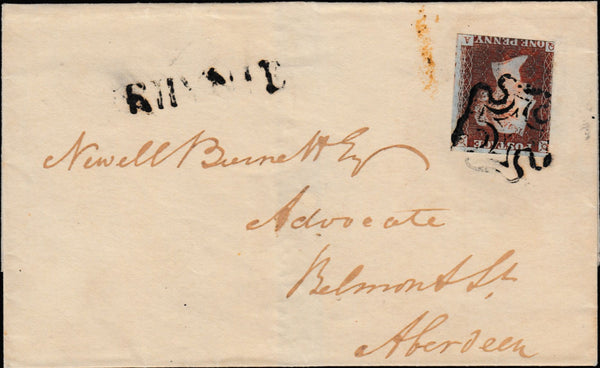 ONE PENNY
POSTAGE
Newell Burnett Esq
Advocate
Belmont St
Aberdeen